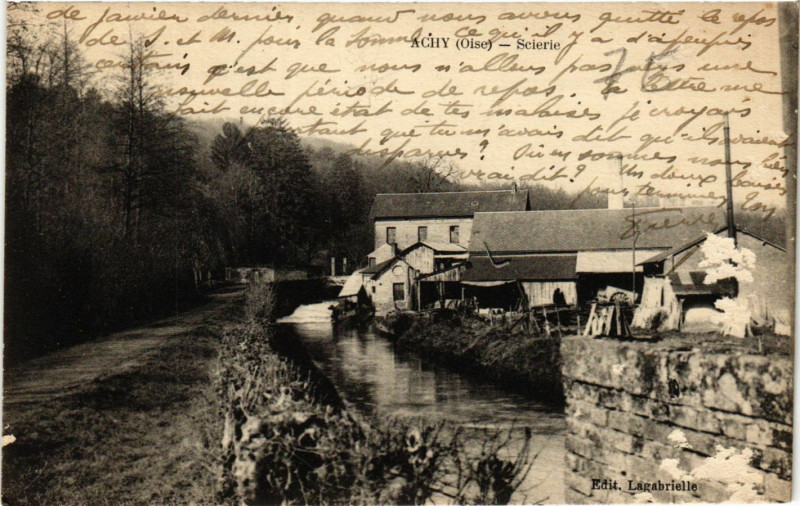 de janvier dernier, quand nous avons quitté le repos
de S. et M. pour la Somme. Ce qu'il y a d'
ACHY (Oise) – Scierie
certain c'est que nous n'allons pas vers une
nouvelle période de repos. Ta lettre me
fait encore état de tes malaises, je croyais
pourtant que tu m'avais dit qu'ils avaient
disparus? Où en sommes nous bien
vrai dit? Un deux baisers
pour terminer. Ton
Pierre
Edit. Lagabrielle